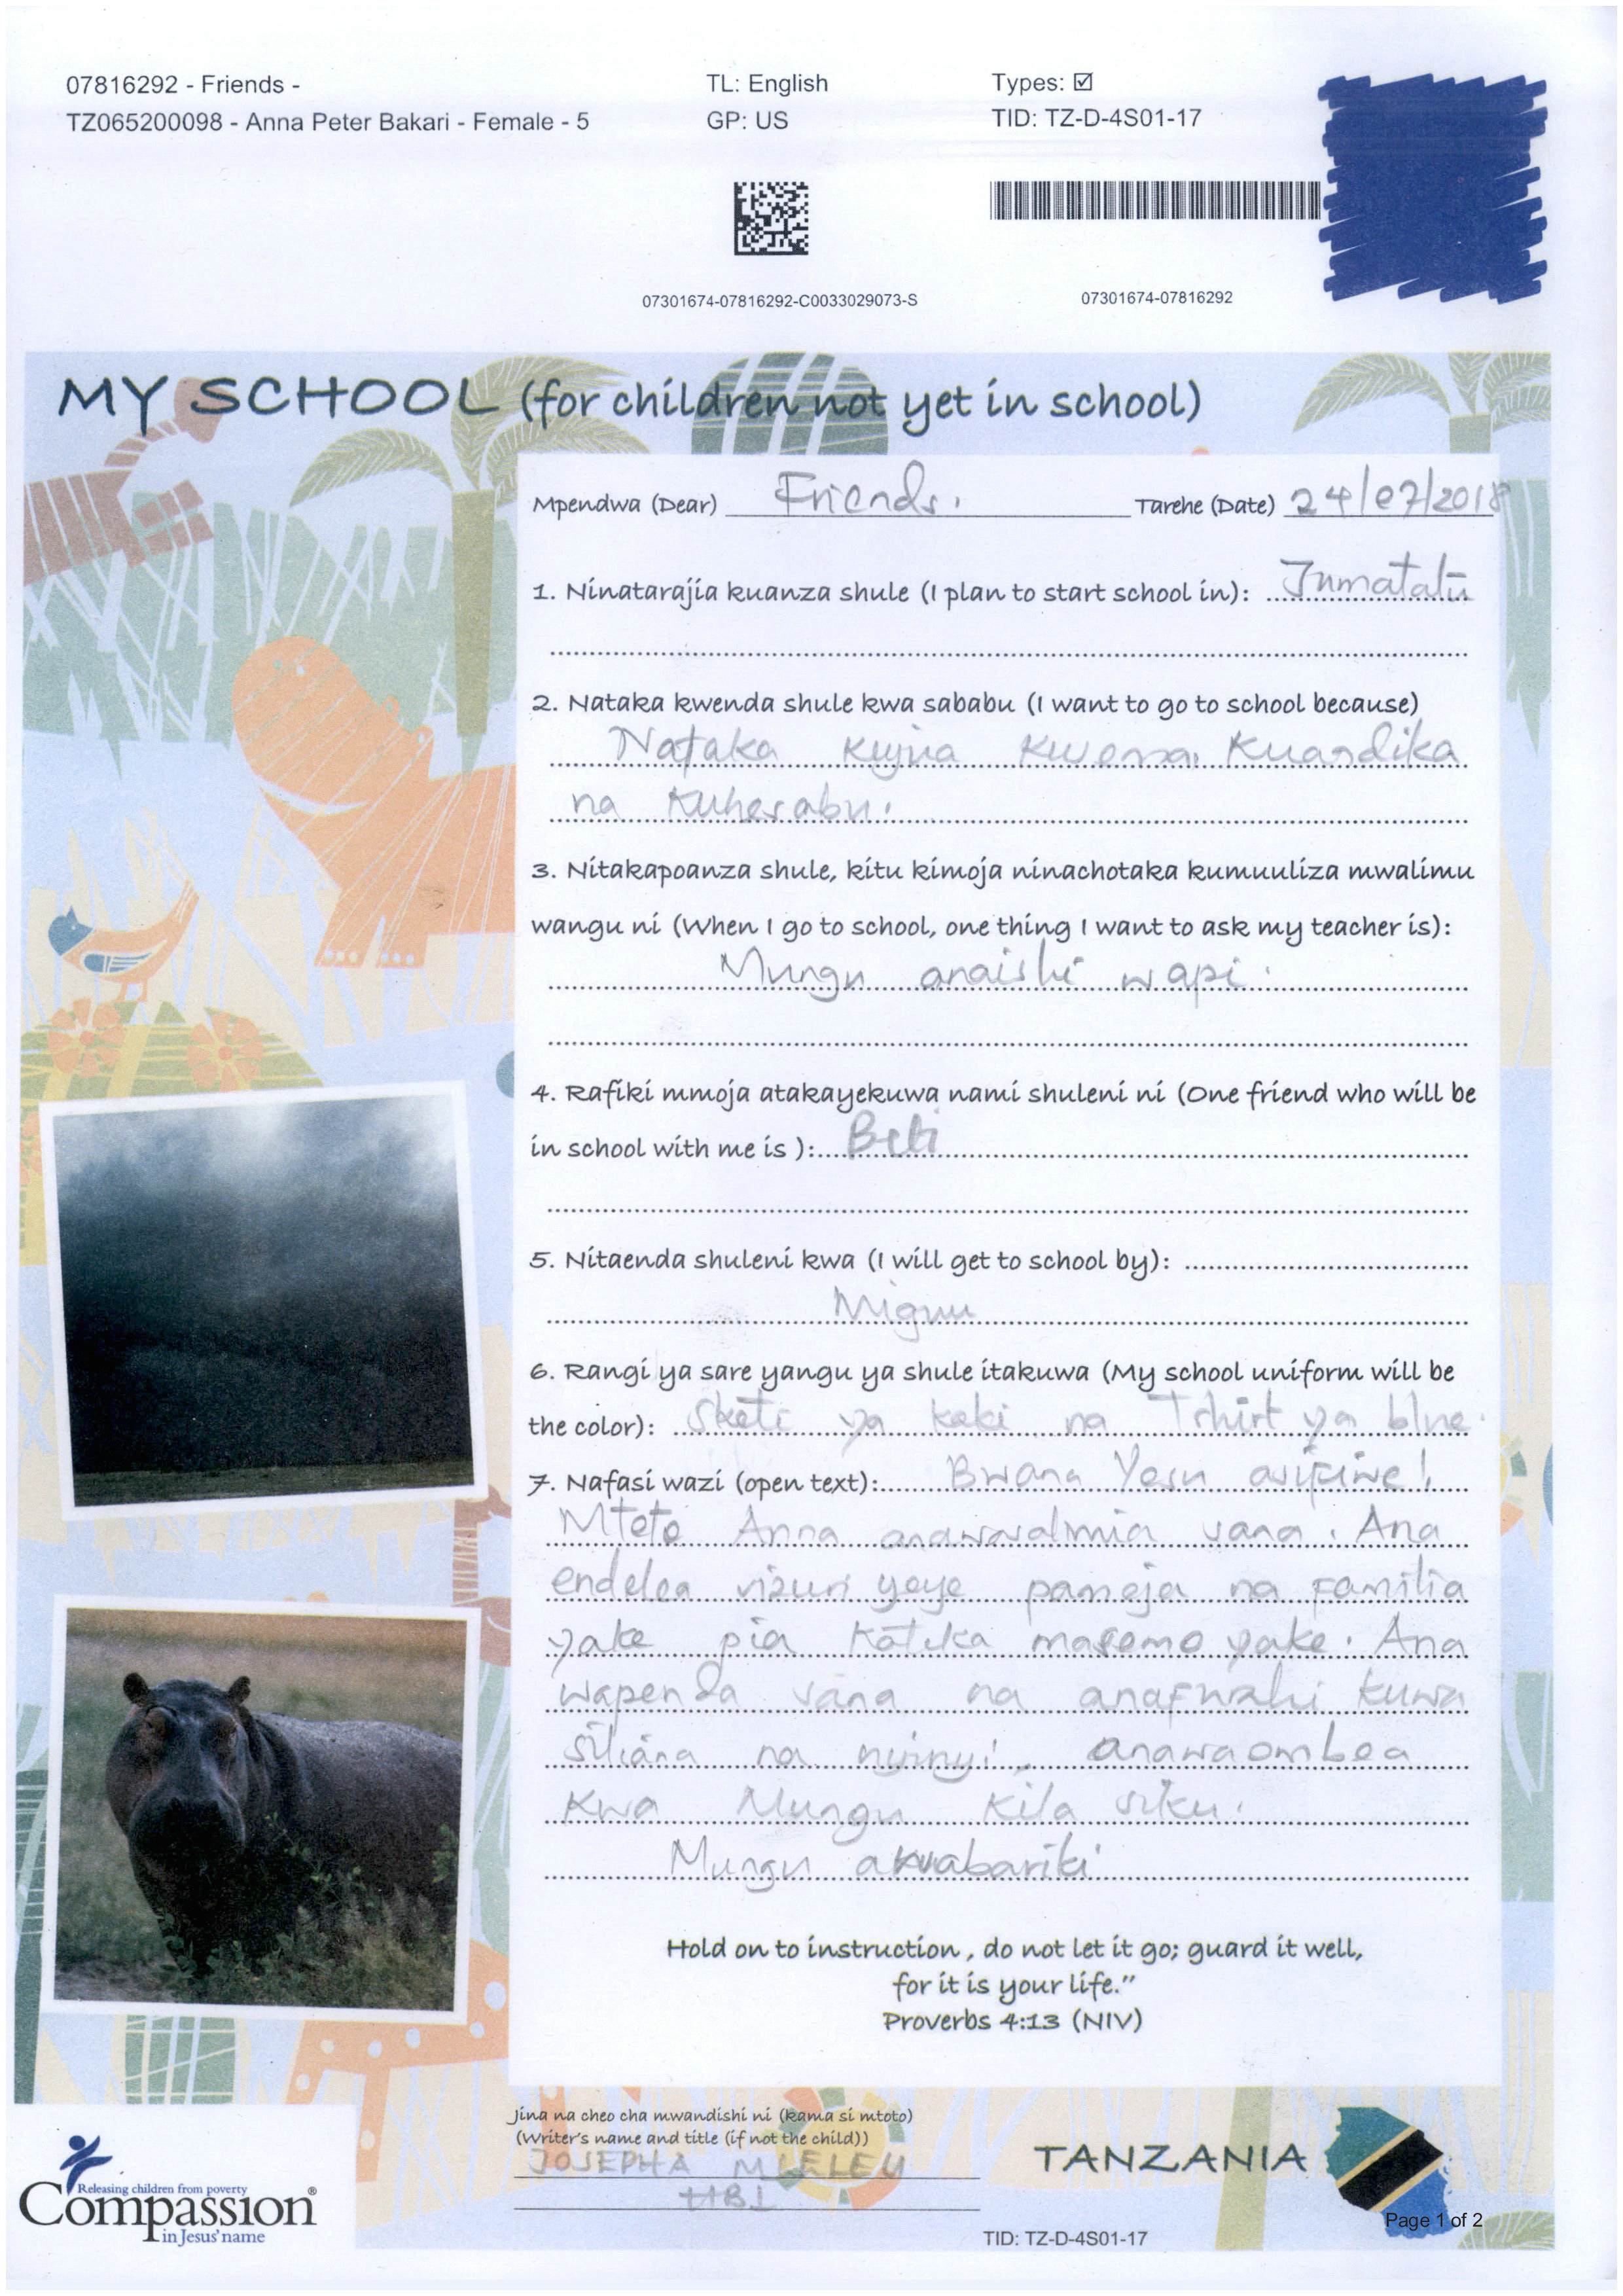 07816292 - Friends -
TZ065200098 - Anna Peter Bakari - Female - 5
TL: English
GP: US
Types: ☑
TID: TZ-D-4S01-17
07301674-07816292-C0033029073-S
07301674-07816292
MY SCHOOL (for children not yet in school)
Mpendwa (Dear) Friends. Tarehe (Date) 24/07/2018
1. Ninatarajia kuanza shule (I plan to start school in): Jumatatu
2. Nataka kwenda shule kwa sababu (I want to go to school because)
Nataka kujua kusoma, Kuandika
na kuhesabu.
3. Nitakapoanza shule, kitu kimoja ninachotaka kumuuliza mwalimu
wangu ni (When I go to school, one thing I want to ask my teacher is):
Mungu anaishi wapi.
4. Rafiki mmoja atakayekuwa nami shuleni ni (One friend who will be
in school with me is ): Beti
5. Nitaenda shuleni kwa (I will get to school by):
Miguu
6. Rangi ya sare yangu ya shule itakuwa (My school uniform will be
the color): Sketi ya kaki na Tshirt ya blue.
7. Nafasi wazi (open text): Bwana Yesu asifiwe!
Mtoto Anna anawasalimia sana. Ana
endelea vizuri yeye pamoja na familia
yake pia katika masomo yake. Ana
wapenda sana na anafurahi kuwa
siliana na nyinyi. anawaombea
Kwa Mungu kila siku.
Mungu akuabariki
Hold on to instruction , do not let it go; guard it well,
for it is your life.”
Proverbs 4:13 (NIV)
Jina na cheo cha mwandishi ni (kama si mtoto)
(Writer's name and title (if not the child))
JOSEPHA
TANZANIA
Releasing children from poverty
Compassion®
in Jesus' name
Page 1 of 2
TID: TZ-D-4S01-17